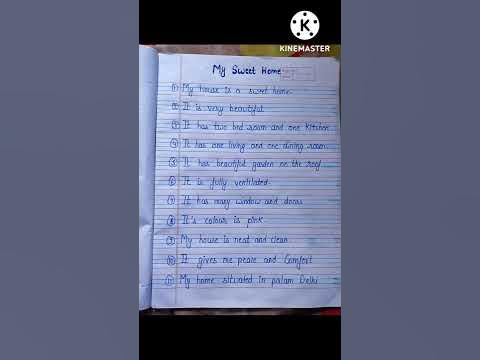 K
KINEMASTER
My Sweet Home
① My house is a sweet home.
② It is very beautiful.
③ It has two bed room and one Kitchen
④ It has one living and one dining room.
⑤ It has beautiful garden on the roof.
⑥ It is fully ventilated.
⑦ It has many window and doors
⑧ It's colour is pink.
⑨ My house is neat and clean
⑩ It gives me peace and Comfort
⑪ My home situated in palam Delhi